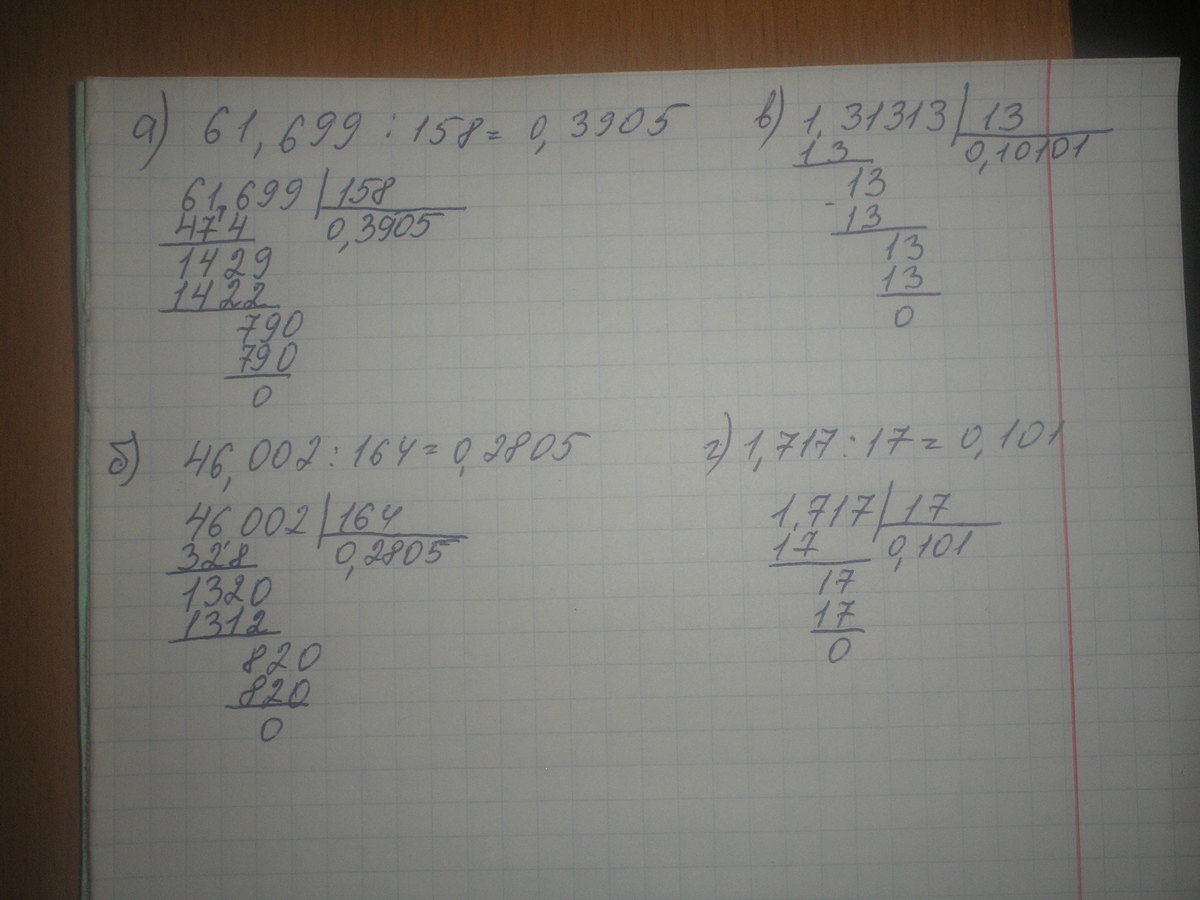 а) 61,699 : 158 = 0,3905
61,699 | 158
474 0,3905
1429
1422
790
790
0
б) 46,002 : 164 = 0,2805
46,002 | 164
328 0,2805
1320
1312
820
820
0
в) 1,31313 | 13
13 0,10101
13
- 13
13
13
0
г) 1,717 : 17 = 0,101
1,717 | 17
17 0,101
17
17
0